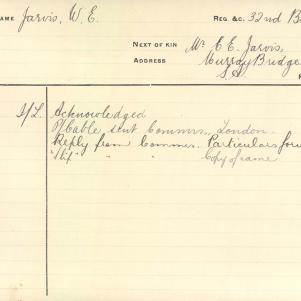 NAME Jarvis, W. E. REG &C. 32nd B
NEXT OF KIN Mr E E. Jarvis,
ADDRESS Murray Bridge
S.A
I/L. Acknowledged
P/Cable sent Commrs., London.
Reply from Commrs. Particulars
" " Copy of same